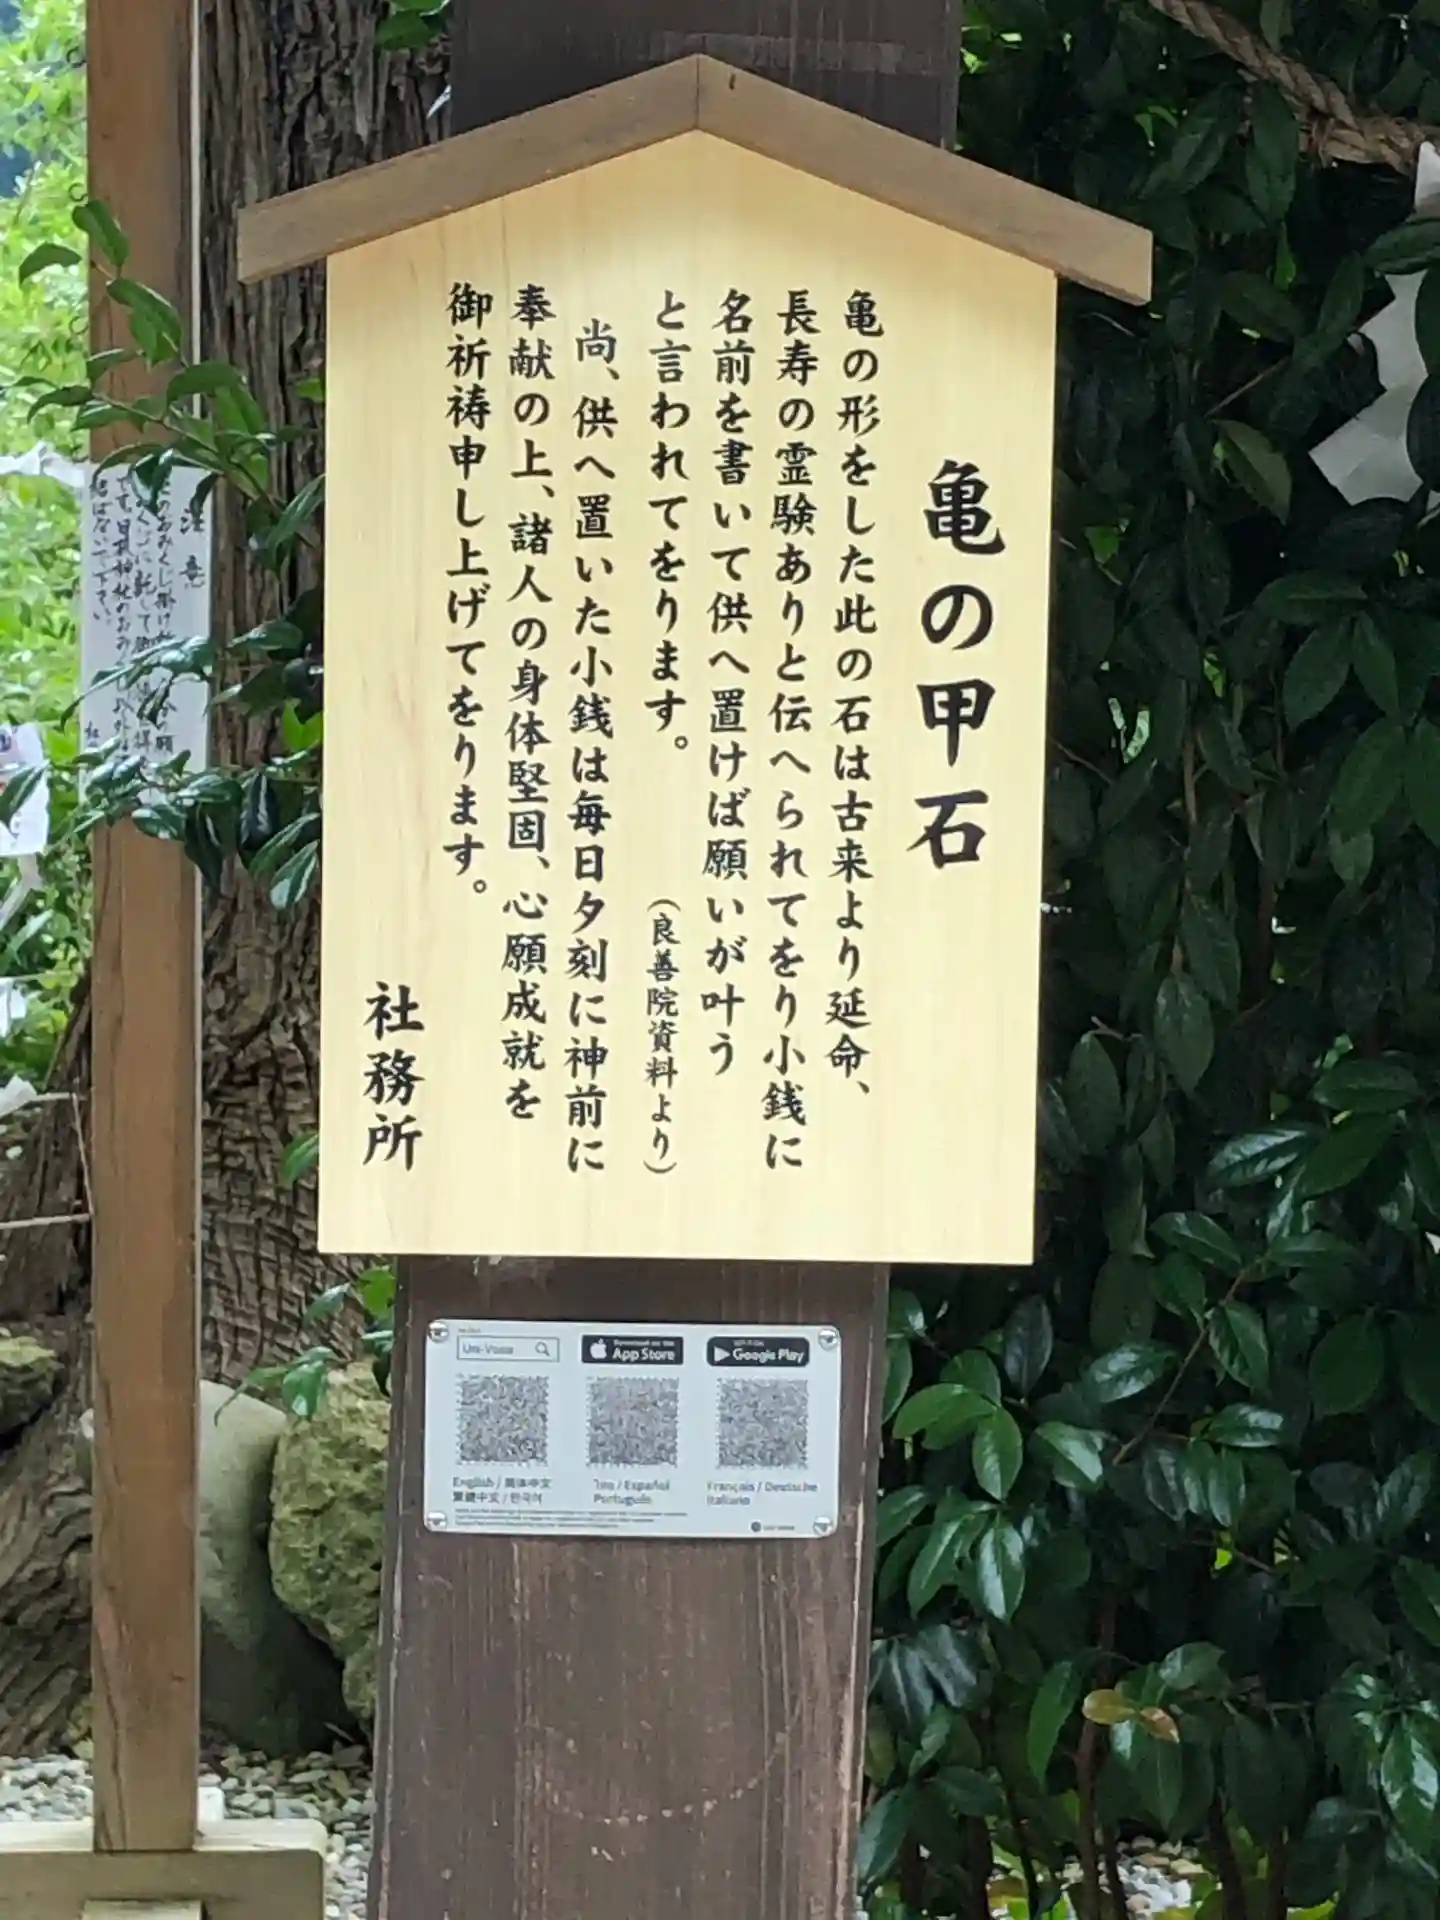 亀の甲石
亀の形をした此の石は古来より延命、
長寿の霊験ありと伝へられてをり小銭に
名前を書いて供へ置けば願いが叶う
と言われてをります。
（良善院資料より）
尚、供へ置いた小銭は毎日夕刻に神前に
奉献の上、諸人の身体堅固、心願成就を
御祈祷申し上げてをります。
社務所
Uni-Voice
App Store
Google Play
English / 简体中文
繁體中文 / 한국어
ไทย / Español
Português
Français / Deutsche
Italiano